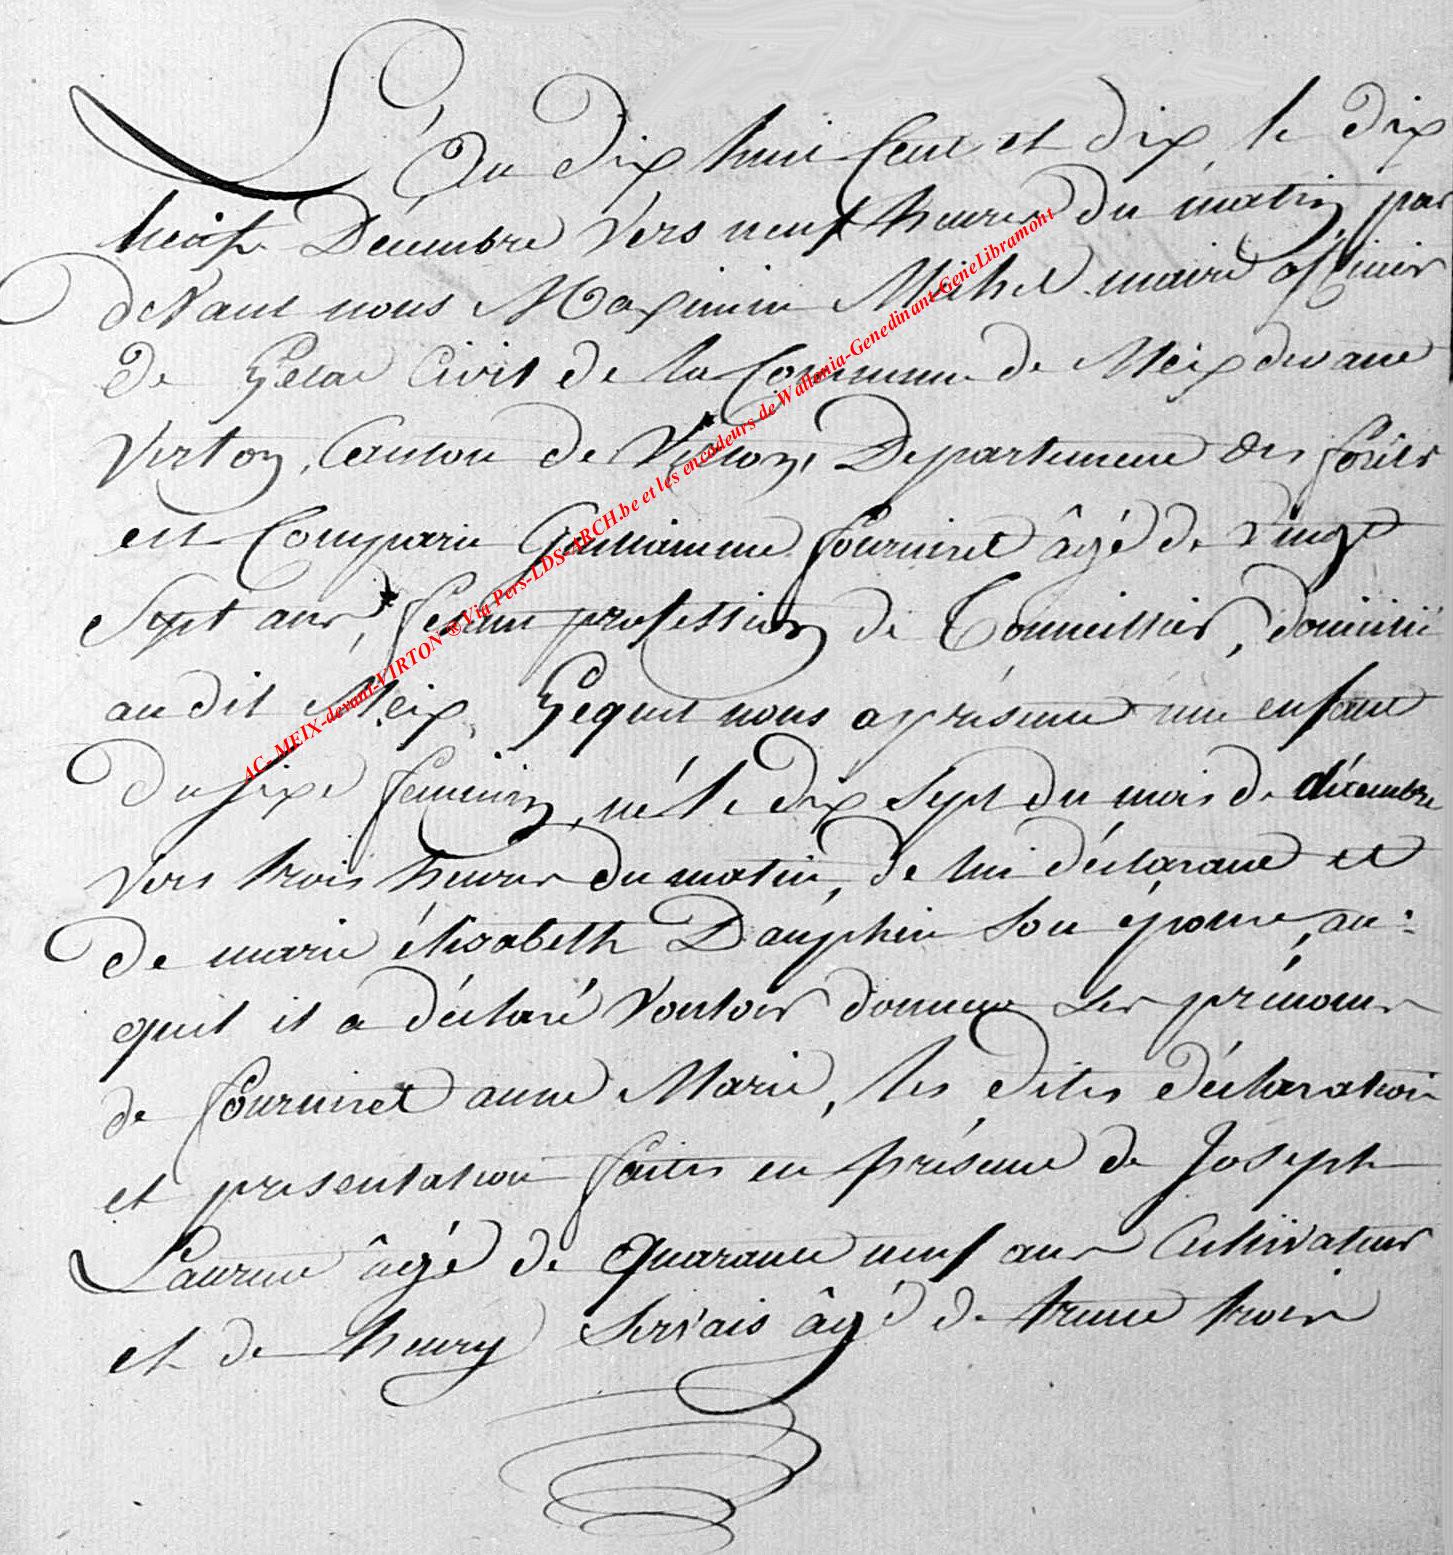 L'an dix huit Cent et dix, le dix
huit Décembre vers neuf heures du matin, par
devant nous Maximin Michel maire officier
de L'etat Civil de la Commune de Meix devant
Virton, Canton de Virton, Departement des forêts
est Comparu Guillaumme fourniret âgé de vingt
Sept ans, fesant profession de Tonnellier, domicilié
au dit Meix, Lequel nous a présenté une enfant
du sexe feminin, né le dix Sept du mois de décembre
vers trois heures du matin, de lui déclarant et
de marie élisabeth Dauphin son épouse, au:
quel il a déclaré vouloir donner les prénoms
de fourniret anne Marie, les dites déclaration
et presentation faites en présence de Joseph
Laurent âgé de quarante neuf ans Cultivateur
et de henry Servais âgé de trente trois
AC-MEIX-devant-VIRTON ® Via Pers-LDS-ARCH.be et les encodeurs de Wallonia-Genedinant-GeneLibramont